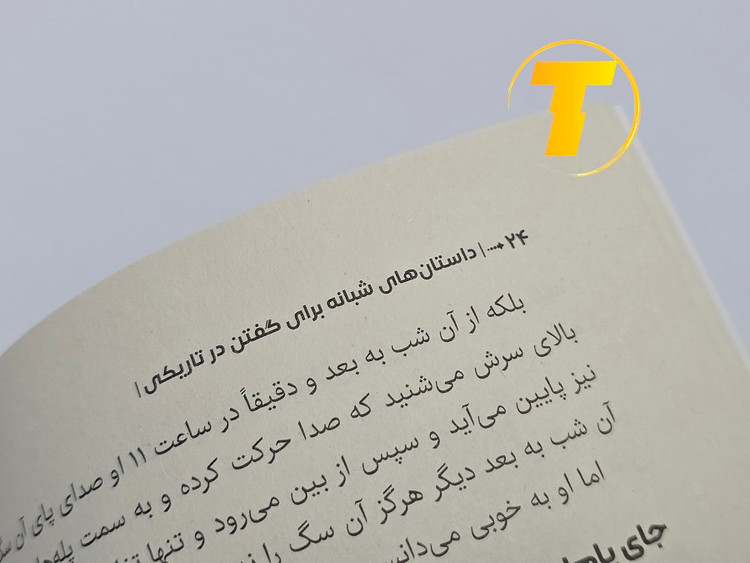 T
۲۴ | داستان‌های شبانه برای گفتن در تاریکی |
بلکه از آن شب به بعد و دقیقاً در ساعت ۱۱ او صدای پای آن
بالای سرش می‌شنید که صدا حرکت کرده و به سمت
نیز پایین می‌آید و سپس از بین می‌رود و تنها
آن شب به بعد دیگر هرگز آن سگ را
اما او به خوبی
جای